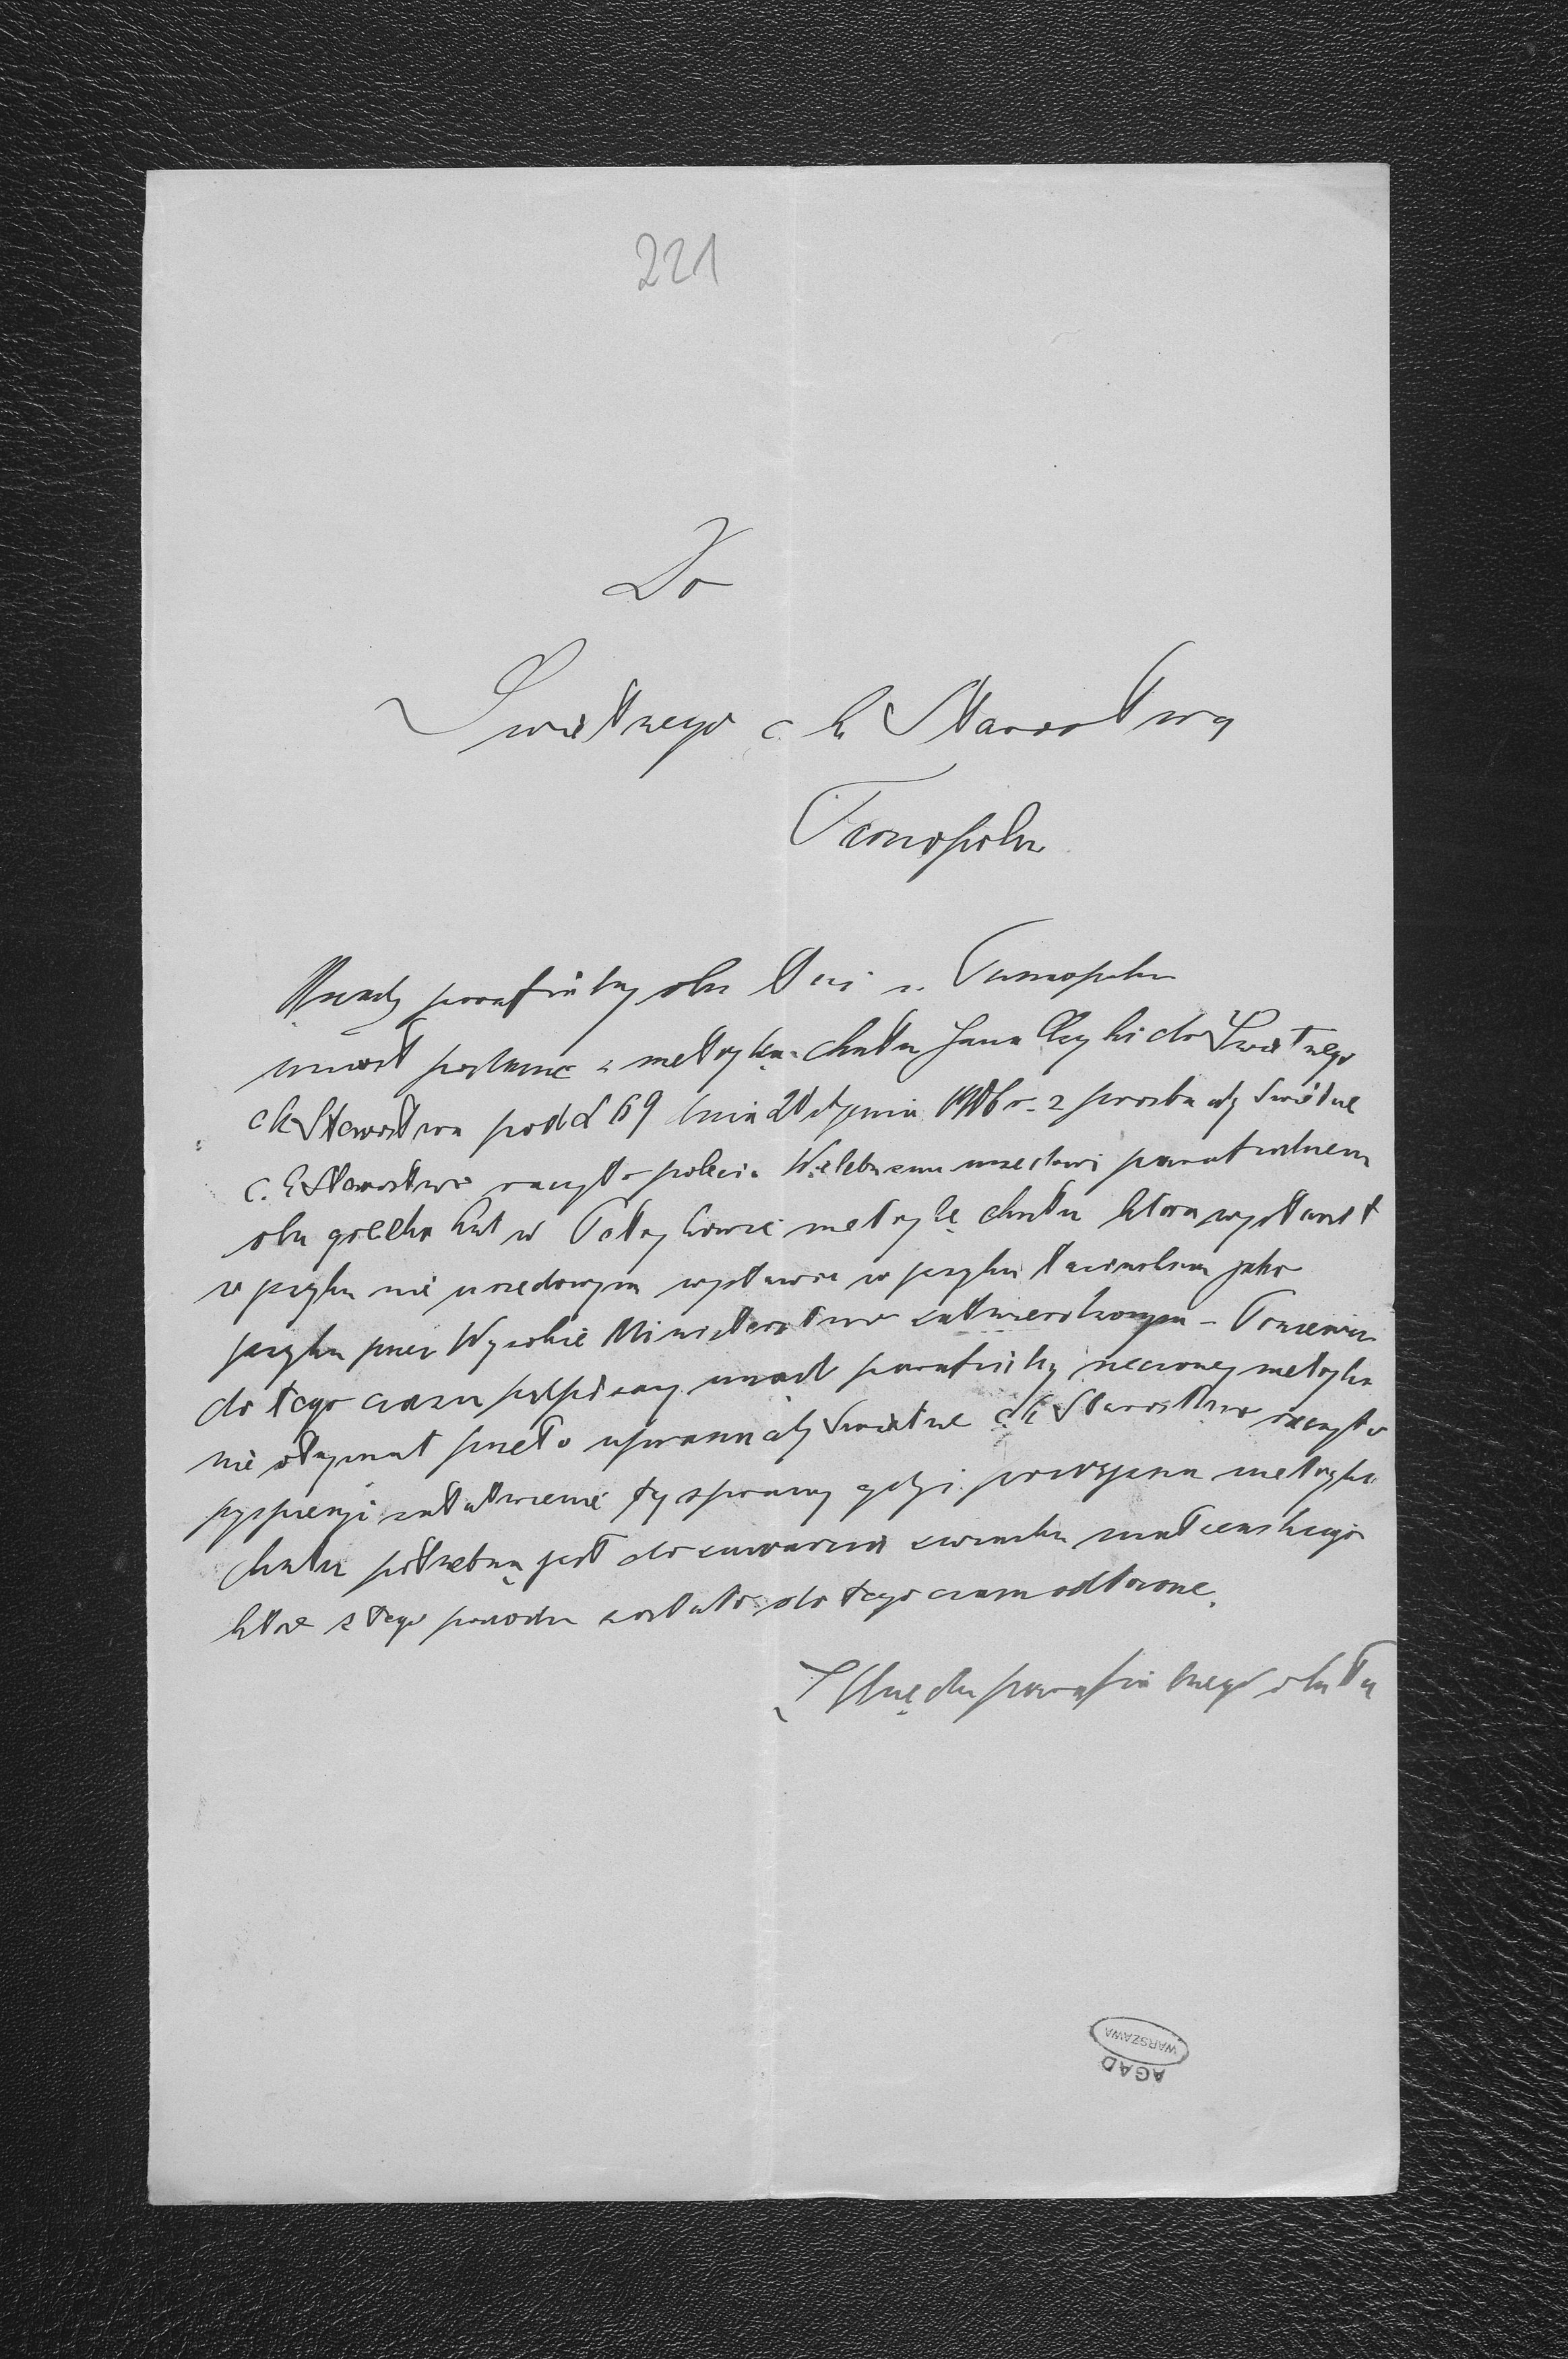 221
Do
Swietnego c k Starostwa
Tarnopolu
Urząd parafialny obr łaci w Tarnopolu
wniosł podanie z metryką chrztu Jana do Swietnego
c k Starostwa pod L 69 dnia 21 stycznia 1906 r. z prosba aby Swietne
c. k Starostwo raczyło polecic Wielebnemu urzedowi parafialnemu
obr gr kat w metrykę chrztu ktora wystawił
w języku nie urzedowym wystawic w języku łacinskim jako
języku przez Wysokie Ministerstwo zatwierdzonym –
do tego czasu podpisany urząd parafialny rzeczonej metryki
nie otrzymał przeto uprasza aby Swietne c. k Starostwo raczyło
załatwienie tej sprawy gdyż metryka
chrztu potrzebna jest do zawarcia zwiazku małzenskiego
ktore z tego powodu zostało do tego czasu odłozone.
Z Urzędu parafialnego ob ła
AGAD
WARSZAWA